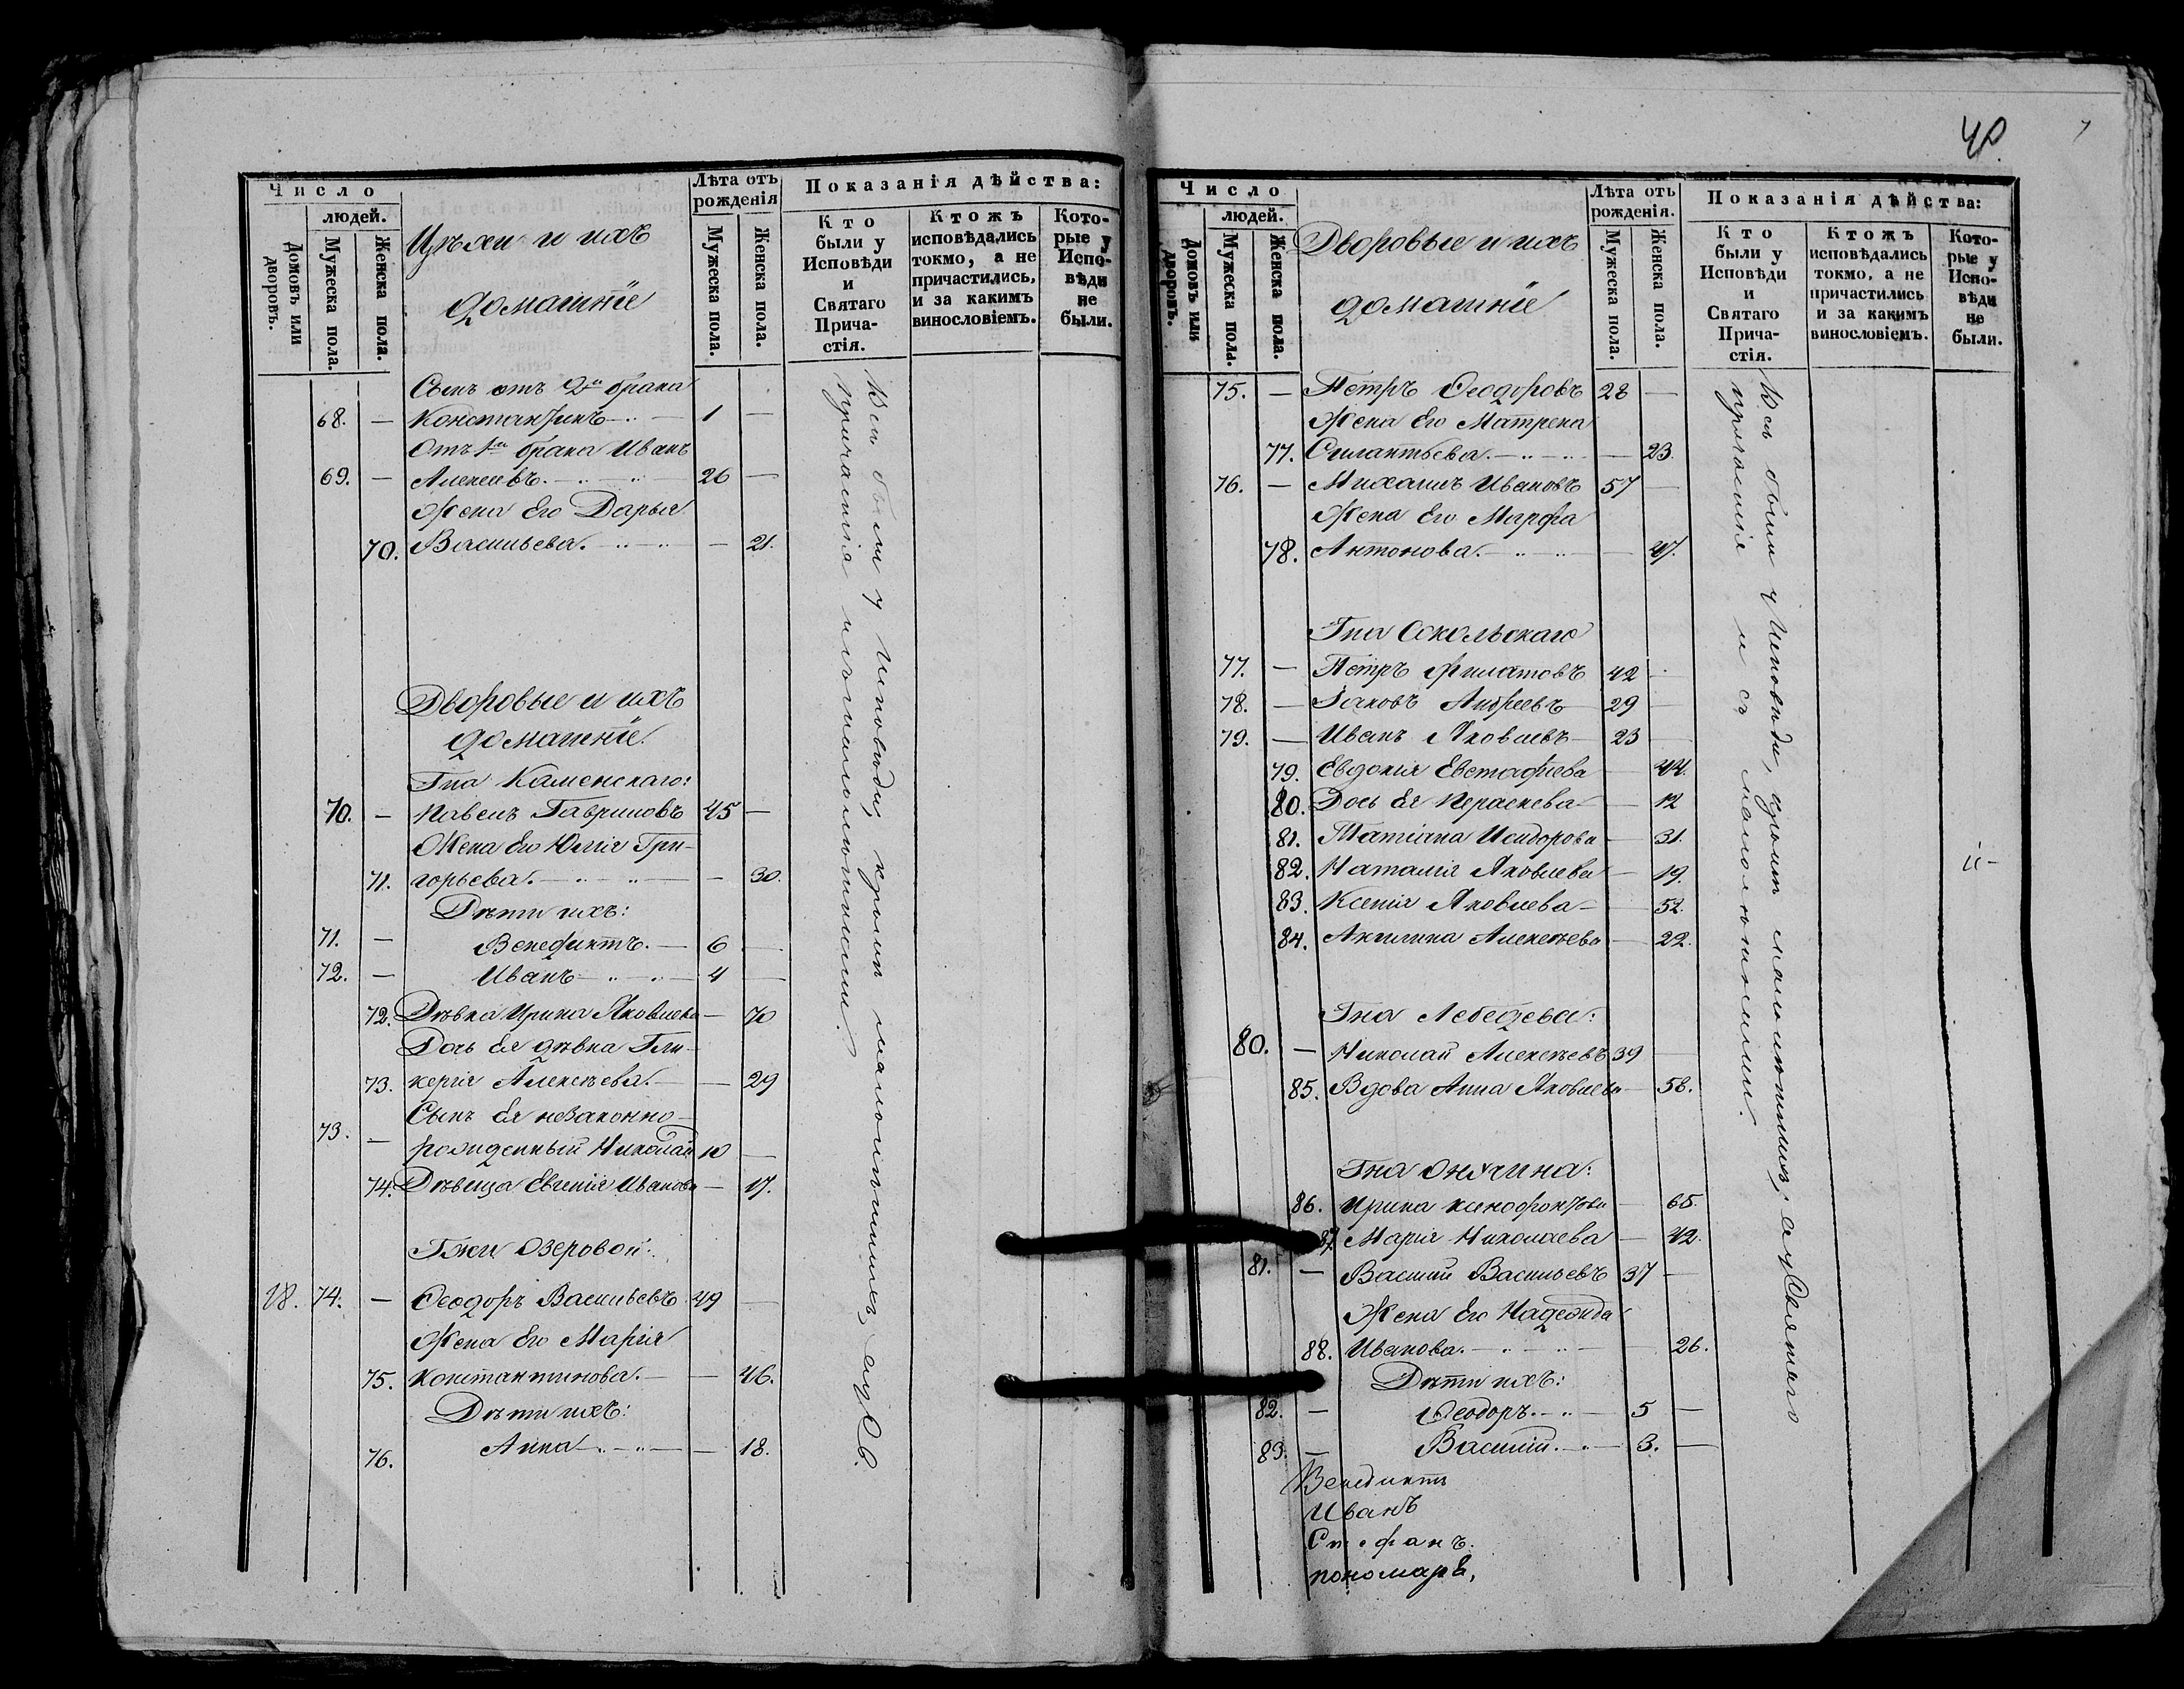 Число
людей.
Домовъ или дворовъ.
Мужеска пола.
Женска пола.
Цѣхи и ихъ
домашніе
Лѣта отъ рожденія
Мужеска пола.
Женска пола.
Показанія дѣйства:
Кто были у Исповѣди и Святаго Прича-стія.
Ктожъ исповѣдались токмо, а не причастились, и за какимъ винословіемъ.
Кото-рые у Испо-вѣди не были.
Сынъ отъ 2го брака
68. — Константинъ — 1 —
Отъ 1го брака Иванъ
69. — Алексѣевъ. — 26 —
Жена Его Дарья
70. Васильева. — — 21.
Дворовые и ихъ
домашніе.
Гна Каменскаго:
70. — Павелъ Гавриловъ 45 —
Жена Его Юлія Гри-
71. горьева. — — 30.
Дѣти ихъ:
71. — Венедиктъ. — 6 —
72. — Иванъ — 4 —
72. Дѣвка Ирина Яковлева — 70
Дочь Ея дѣвка Гли-
73. керія Алексѣева. — — 29
Сынъ Ея незаконно-
73. — рожденный Николай 10 —
74. Дѣвица Евгенія Иванова — 17.
Гжи Озеровой:
18. 74. — Ѳеодоръ Васильевъ 49 —
Жена Его Марія
75. Константинова. — — 46.
Дѣти ихъ:
76. Анна — — 18.
Всѣ были у Исповѣди, кромѣ малолѣтнихъ, а у Св.
причастія и съ малолѣтними.
40
Число
людей.
Домовъ или дворовъ.
Мужеска пола.
Женска пола.
Дворовые и ихъ
домашніе
Лѣта отъ рожденія.
Мужеска пола.
Женска пола.
Показанія дѣйства:
Кто были у Исповѣди и Святаго Прича-стія.
Ктожъ исповѣдались токмо, а не причастились и за какимъ винословіемъ.
Кото-рые у Испо-вѣди не были.
75. — Петръ Ѳеодоровъ 28 —
Жена Его Матрена
77. Силантьева. — — 23.
76. — Михаилъ Ивановъ 57 —
Жена Его Марфа
78. Антонова. — — 47.
Гна Сокольскаго
77. — Петръ Филатовъ 42 —
78. — Іаковъ Андреевъ 29 —
79. — Иванъ Яковлевъ 23 —
79. Евдокія Евстафіева — 44.
80. Дочь Ея Параскева — 12
81. Татіана Исидорова — 31.
82. Наталія Яковлева — 19.
83. Ксенія Яковлева — 52.
84. Акилина Алексѣева — 22.
Гна Лебедева:
80. — Николай Алексѣевъ 39 —
85. Вдова Анна Яковлева — 58.
Гна Онучина:
86. Ирина Ксенофонтова — 65.
87. Марія Николаева — 42.
81. — Василій Васильевъ 37 —
Жена Его Надежда
88. Иванова. — — 26.
Дѣти ихъ:
82. — Ѳеодоръ. — 5 —
83. — Василій. — 3. —
Венедиктъ
Иванъ
Стефанъ.
пономарь,
Всѣ были у Исповѣди, кромѣ малолѣтнихъ; а у Святаго
причастія и съ малолѣтними.